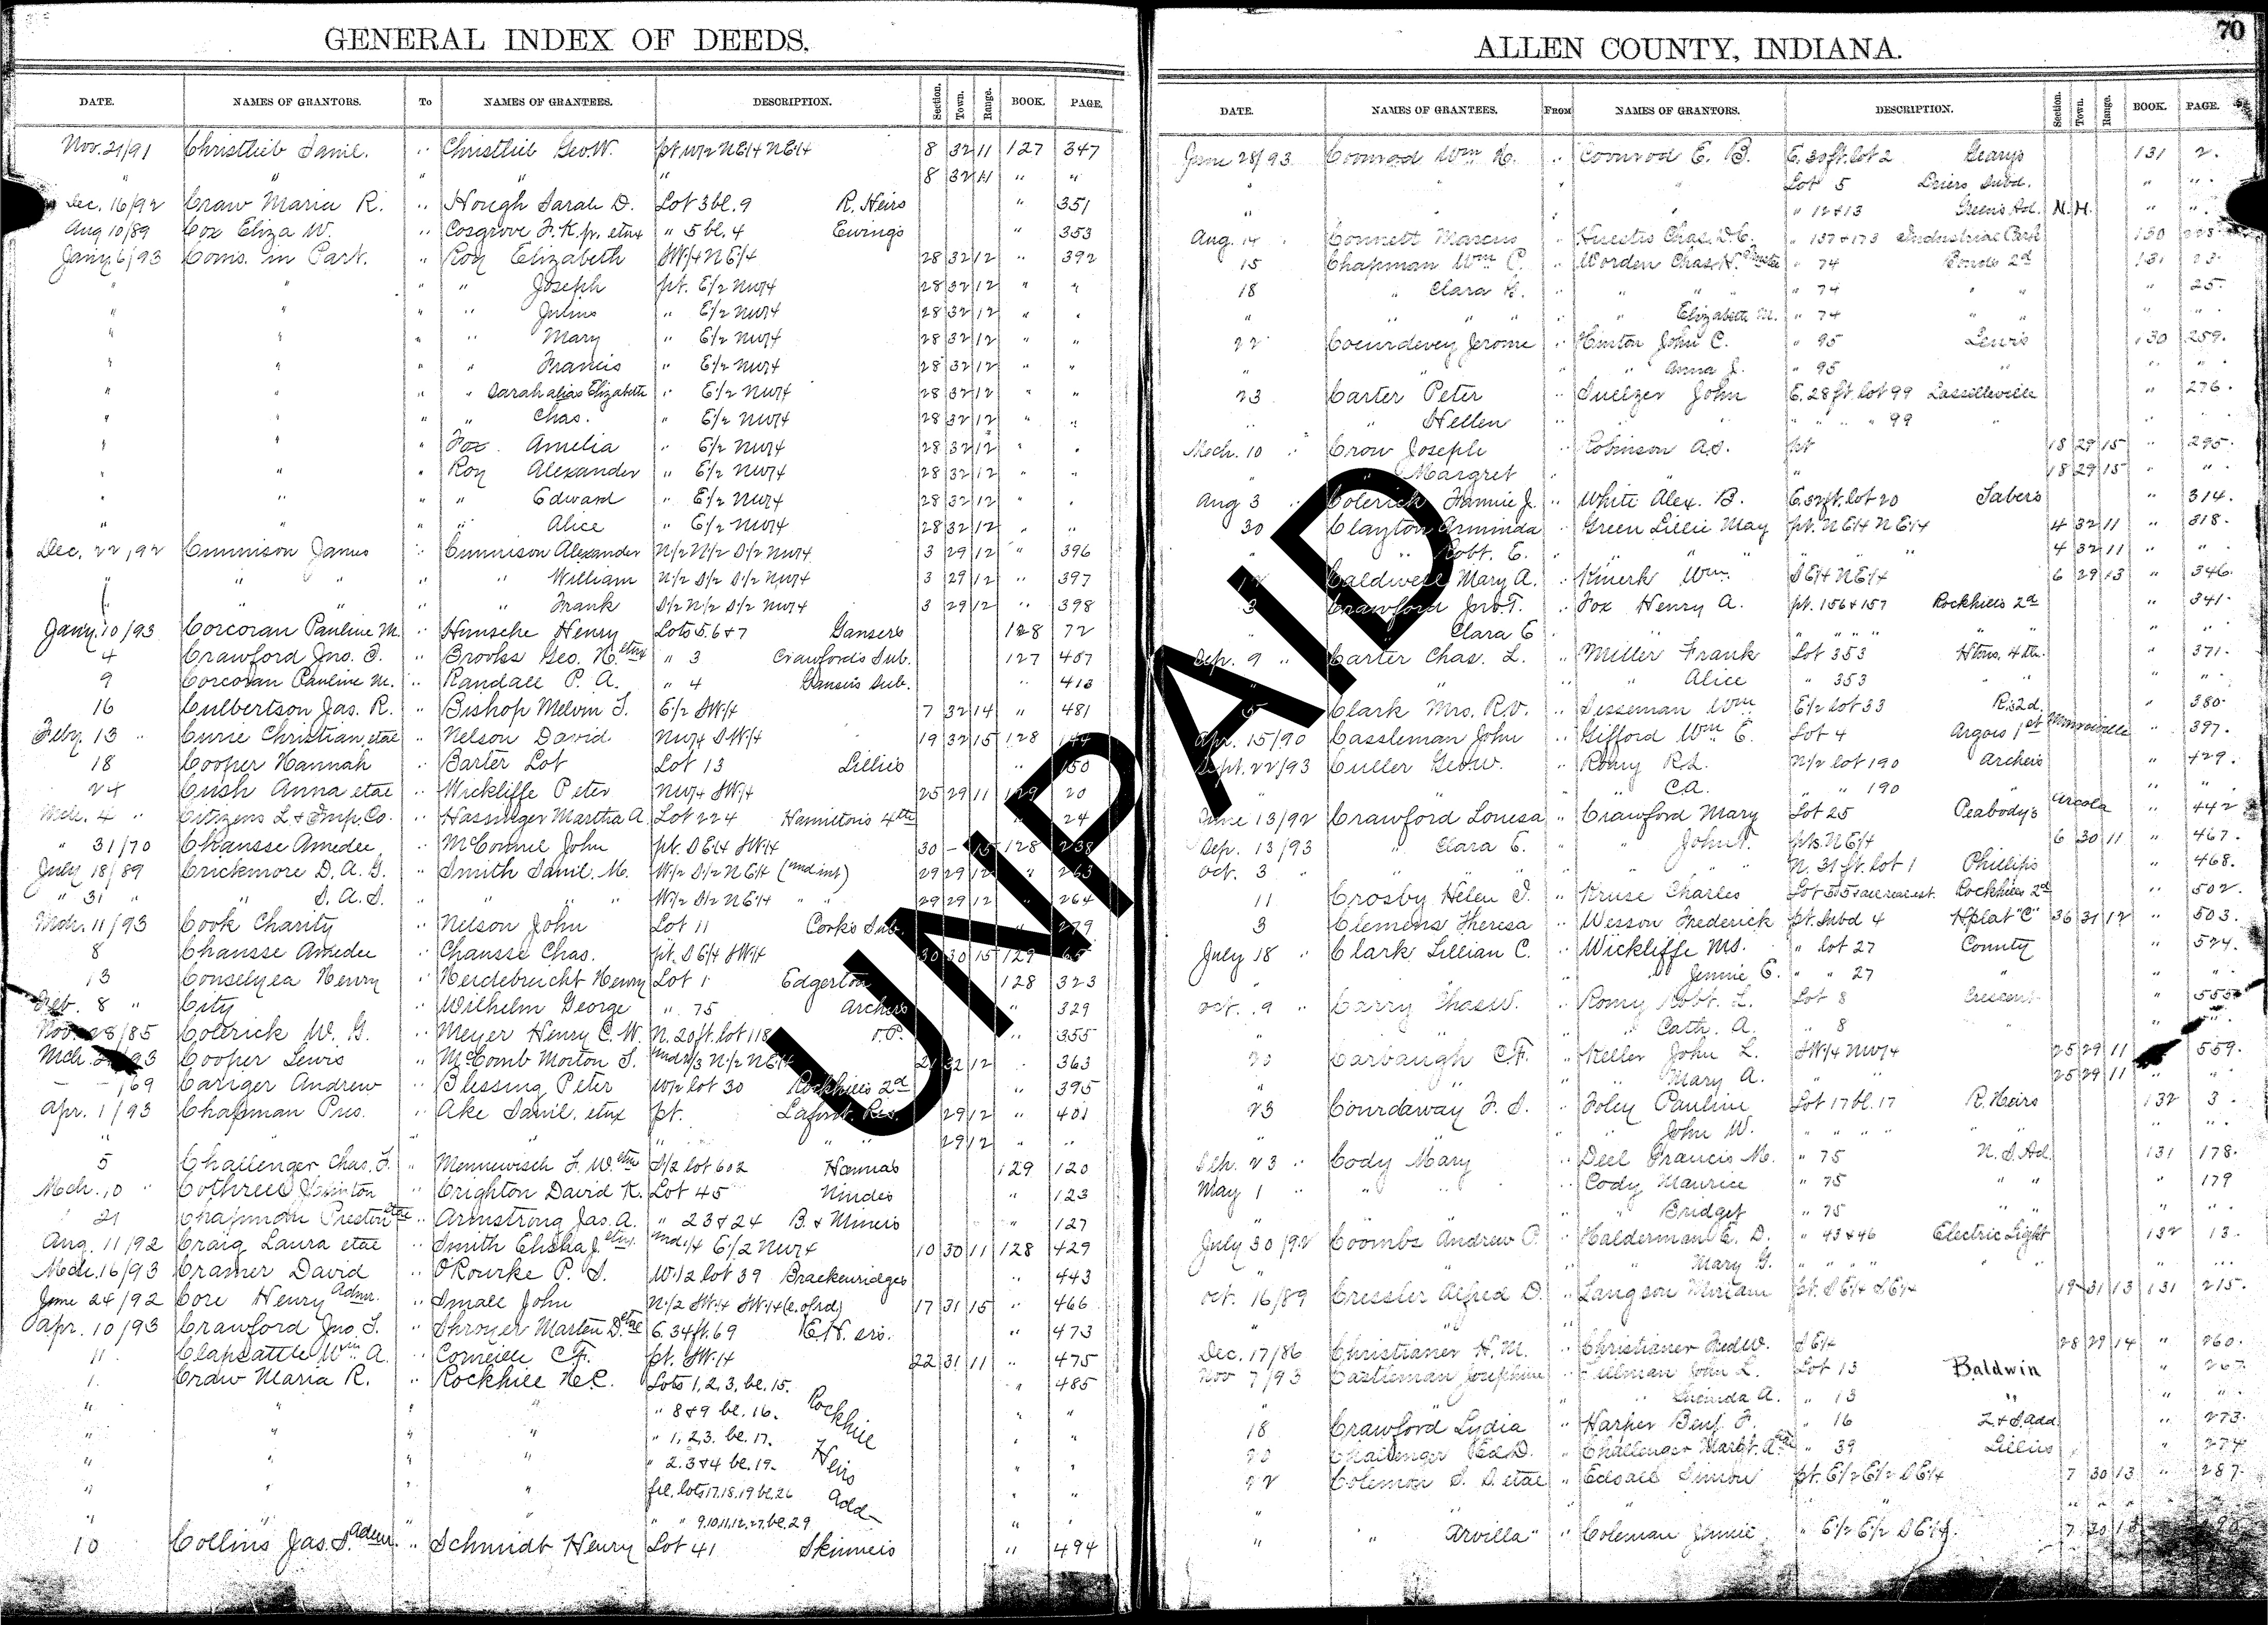 GENERAL INDEX OF DEEDS.
DATE. NAMES OF GRANTORS. To NAMES OF GRANTEES. DESCRIPTION. Section. Town. Range. BOOK. PAGE.
Nov. 21/91 Christlieb Danil. " Christlieb Geo. W. pt W/2 NE/4 NE/4 8 32 11 127 347
" " " " " 8 32 11 " "
Dec. 16/92 Craw Maria R. " Hough Sarah D. Lot 3 bl. 9 R. Heirs " 351
Aug 10/89 Cox Eliza W. " Cosgrove F. K. jr. etux " 5 bl. 4 Ewings " 353
Jany. 6/93 Coms. in Part. " Roy Elizabeth SW/4 NE/4 28 32 12 " 392
" " " " Joseph pt. E/2 NW/4 28 32 12 " "
" " " " Julius " E/2 NW/4 28 32 12 " "
" " " " Mary " E/2 NW/4 28 32 12 " "
" " " " Francis " E/2 NW/4 28 32 12 " "
" " " " Sarah alias Elizabeth " E/2 NW/4 28 32 12 " "
" " " " Chas. " E/2 NW/4 28 32 12 " "
" " " Fox Amelia " E/2 NW/4 28 32 12 " "
" " " Roy Alexander " E/2 NW/4 28 32 12 " "
" " " " Edward " E/2 NW/4 28 32 12 " "
" " " " Alice " E/2 NW/4 28 32 12 " "
Dec. 22, 92 Cunnison James " Cunnison Alexander N/2 N/2 S/2 NW/4 3 29 12 " 396
" " " " " William N/2 S/2 S/2 NW/4 3 29 12 " 397
" " " " Frank S/2 N/2 S/2 NW/4 3 29 12 " 398
Jany. 10/93 Corcoran Pauline M. " Hunsche Henry Lots 5. 6 & 7 Ganser's 128 72
4 Crawford Jno. T. " Brooks Geo. N. etux " 3 Crawford's Sub. 127 407
9 Corcoran Pauline M. " Randall P. A. " 4 Gansers Sub. " 413
16 Culbertson Jas. R. " Bishop Melvin S. E/2 SW/4 7 32 14 " 481
Feby. 13 " Curie Christian, etal " Nelson David NW/4 SW/4 19 32 15 128 144
18 Cooper Hannah " Barter Lot Lot 13 Lillie's " 150
24 Cush Anna etal " Wickliffe Peter NW/4 SW/4 25 29 11 129 20
Mch. 4 " Citizens L. & Imp. Co. " Hassinger Martha A. Lot 224 Hamilton's 4th " 24
" 31/70 Chausse Amedee " McConnel John pt. SE/4 SW/4 30 - 15 128 238
July 18/89 Crickmore D. A. G. " Smith Danil. M. W/2 S/2 NE/4 (und int) 29 29 12 " 263
" 31 " " S. A. D. " " " " W/2 S/2 NE/4 " " 29 29 12 " 264
Mch. 11/93 Cook Charity " Nelson John Lot 11 Cook's Sub. " 279
8 Chausse Amedee " Chausse Chas. pt. SE/4 SW/4 30 30 15 129
13 Conselyea Henry " Heidebricht Henry Lot 1 Edgerton 128 323
Feb. 8 " City " Wilhelm George " 75 Archers " 329
Nov. 28/85 Colerick W. G. " Meyer Henry C. W. N. 20 ft. lot 118 " 355
Mch. /93 Cooper Lewis " McComb Morton S. und 1/3 N/2 NE/4 21 32 12 " 363
— — /69 Cariger Andrew " Blessing Peter W/2 lot 30 Rockhills 2d " 395
Apr. 1/93 Chapman Pris. " Ake Danil. etux pt. Lafont. Res. 29 12 " 401
" " " " " " 29 12 " "
5 Challenger Chas. F. " Mennewisch F. W. etux S/2 lot 602 Hanna's 129 120
Mch. 10 " Cothrell " Crighton David K. Lot 45 Nindes " 123
21 Chapman Preston etal " Armstrong Jas. A. " 23 & 24 B. & Miners " 127
Aug. 11/92 Craig Laura etal " Smith Elisha J. etux und 1/4 E/2 NW/4 10 30 11 128 429
Mch. 16/93 Cramer David " O'Rourke P. S. W. 1/2 lot 39 Brackenridges " 443
June 24/92 Core Henry Admr. " Small John N/2 SW/4 SW/4 (e. of rd) 17 31 15 " 466
Apr. 10/93 Crawford Jno. T. " Shroyer Marten D. etal E. 34 ft. 69 " 473
11 Clapsattle Wm A. " Corneille C. F. pt. SW/4 22 31 11 " 475
1. Craw Maria R. " Rockhill H. C. Lots 1, 2, 3, bl. 15. Rockhill Heirs Add " 485
" " " " " 8 & 9 bl. 16. " "
" " " " " 1, 2, 3. bl. 17. " "
" " " " " 2. 3 & 4 bl. 19. " "
" " " lots 17. 18. 19 bl. 26 " "
" " " " 9. 10. 11. 12. 27. bl. 29 " "
10 Collins Jas. S. Admr. " Schmidt Henry Lot 41 Skinners " 494
ALLEN COUNTY, INDIANA.
70
DATE. NAMES OF GRANTEES. FROM NAMES OF GRANTORS. DESCRIPTION. Section. Town. Range. BOOK. PAGE.
June 28/93 Coonrod Wm H. " Coonrod E. B. E. 30 ft. lot 2 Geary's 131 2.
" " " Lot 5 Driers Subd. " "
" " " " 12 & 13 Green's Ad. N. H. " "
Aug. 14 " Connett Marcus " Huestis Chas. D. C. " 137 & 173 Industrial Park 130 228
15 Chapman Wm C. " Worden Chas. H. Trustee " 74 Bonds 2d 131 23
18 " Clara H. " " " " 74 " " " 25.
" " " " Elizabeth M. " 74 " " " "
22 Coeurdevey Jerome " Hinton John C. " 95 Lewis 130 259.
" " " Anna J. " 95 " " "
23 Carter Peter " Suelzer John E. 28 ft. lot 99 Lasselleville " 276.
" " Hellen " " " 99 " " "
Mch. 10 " Crow Joseph " Robinson A. S. pt 18 29 15 " 295.
" " Margret " " " 18 29 15 " "
Aug 3 " Colerick Fannie J. " White Alex. B. E. 32 ft. lot 20 Tabers " 314.
30 Clayton Arminda " Green Lillie May pt. NE/4 NE/4 4 32 11 " 318.
" " Robt. E. " " " " " 4 32 11 " "
Caldwell Mary A. " Kinerk Wm SE/4 NE/4 6 29 13 " 346.
3 Crawford Jno. T. " Fox Henry A. pt. 156 & 157 Rockhills 2d " 341.
" Clara E. " " " " " " "
Sep. 9 " Carter Chas. L. " Miller Frank Lot 353 Htns, 4th. " 371.
" " " Alice " 353 " " "
Clark Mrs. R. V. " Sesseman Wm E/2 lot 33 R's 2d. " 380.
Apr. 15/90 Cassleman John " Gifford Wm E. Lot 4 Argo's 1st Monroeville " 397.
Sept. 22/93 Culler Geo. W. " Romy R. L. N/2 lot 190 Archers " 429.
" " " C. A. " " 190 " " "
June 13/92 Crawford Louesa " Crawford Mary Lot 25 Peabody's Arcola " 442
Sep. 13/93 " Clara E. " " John T. pts. NE/4 6 30 11 " 467.
Oct. 3 " " " " " " N. 31 ft. lot 1 Phillips " 468.
11 Crosby Helen I. " Kruse Charles Rockhills 2d " 502.
3 Clemens Theresa " Wesson Frederick pt. Subd 4 H plat "C" 36 31 12 " 503.
July 18 " Clark Lillian C. " Wickliffe M. S. " lot 27 County " 524.
" " Jennie E. " " 27 " " "
Oct. 9 " Carry Chas. W. " Romy Robt. L. Lot 8 Crescent " 555
" " Cath. A. " 8 " " "
20 Carbaugh C. F. " Keller John L. SW/4 NW/4 25 29 11 " 559.
" " " " Mary A. " " 25 29 11 " "
23 Courdaway F. S. " Foley Pauline Lot 17 bl. 17 R. Heirs 132 3.
" " " John W. " " " " " "
Sep. 23 " Cody Mary " Deel Francis M. " 75 N. S. Ad. 131 178.
May 1 " " " Cody Maurice " 75 " " " 179
" " Bridget " 75 " " " "
July 30/92 Coombs Andrew P. " Halderman E. D. " 45 & 46 Electric Light 132 13.
" " Mary G. " " " " " "
Oct. 16/89 Cressler Alfred D. " Langson Miriam pt. SE/4 SE/4 19 31 13 131 215.
" " "
Dec. 17/86 Christianer H. M. " Christianer Fred W. SE/4 28 29 14 " 260.
Nov 7/93 Castleman Josephine " Tillman John L. Lot 13 Baldwin " 267.
" " " Lucinda A. " 13 " " "
18 Crawford Lydia " Harper Benj. F. " 16 L. & S. Add. " 273.
20 Challenger Ed. D. " Challenger Margt. A. etal " 39 Lillies " 274.
22 Coleman S. D. etal " Edsall Simon pt. E/2 E/2 SE/4 7 30 13 " 287.
" " " " " " " " "
" " Arvilla " " Coleman Jennie " E/2 E/2 SE/4
UNPAID